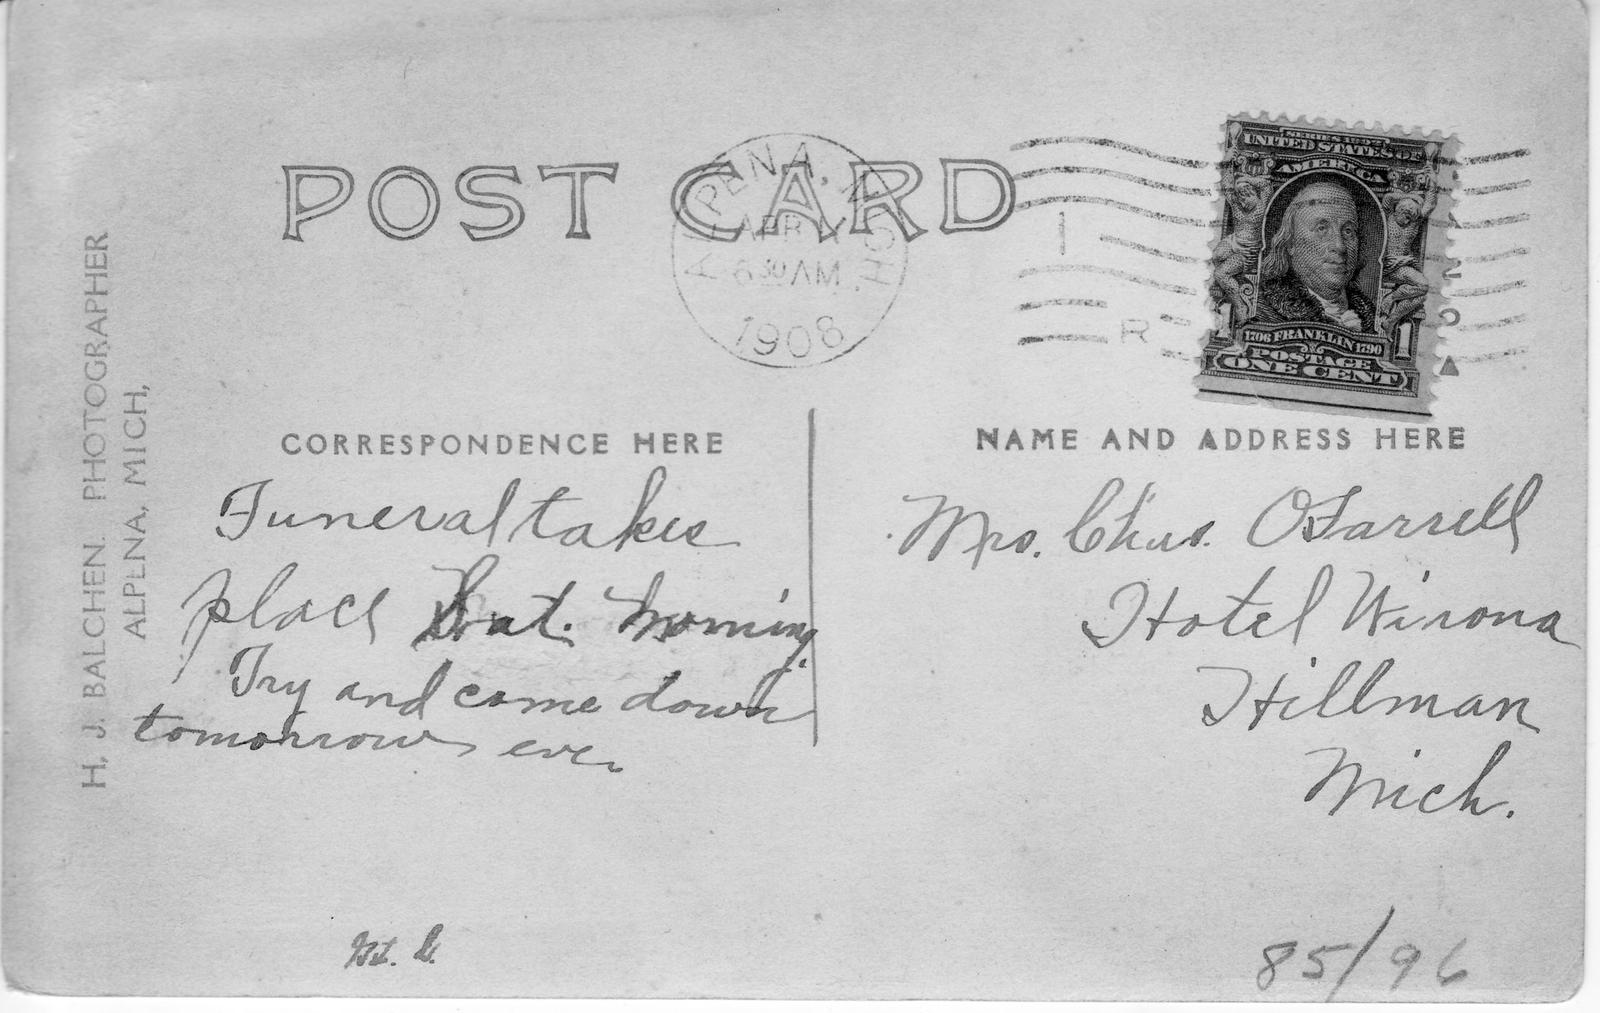 POST CARD
ALPENA, MICH.
APR
6 30 AM
1908
1
R
SERIES 1902
UNITED STATES OF
AMERICA
1 1706 FRANKLIN 1790 1
POSTAGE
ONE CENT
H. J. BALCHEN. PHOTOGRAPHER
ALPENA, MICH,
CORRESPONDENCE HERE
Funeral takes
place Sat. morning
Try and come down
tomorrow eve.
NAME AND ADDRESS HERE
Mrs. Chas. OFarrell
Hotel Winona
Hillman
Mich.
85/96